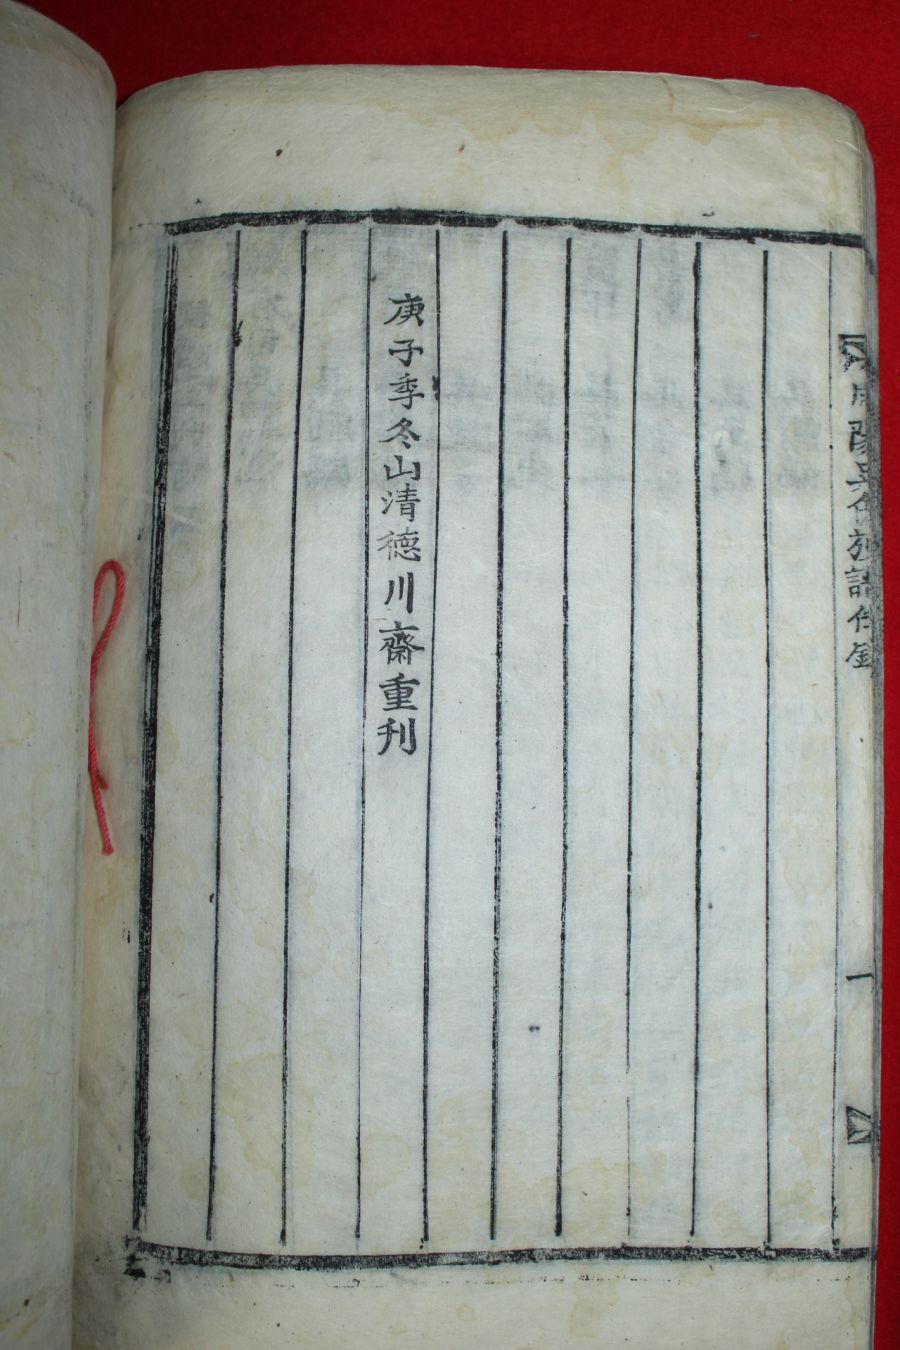 咸陽
譜
一
庚子季冬山清德川齋重刊